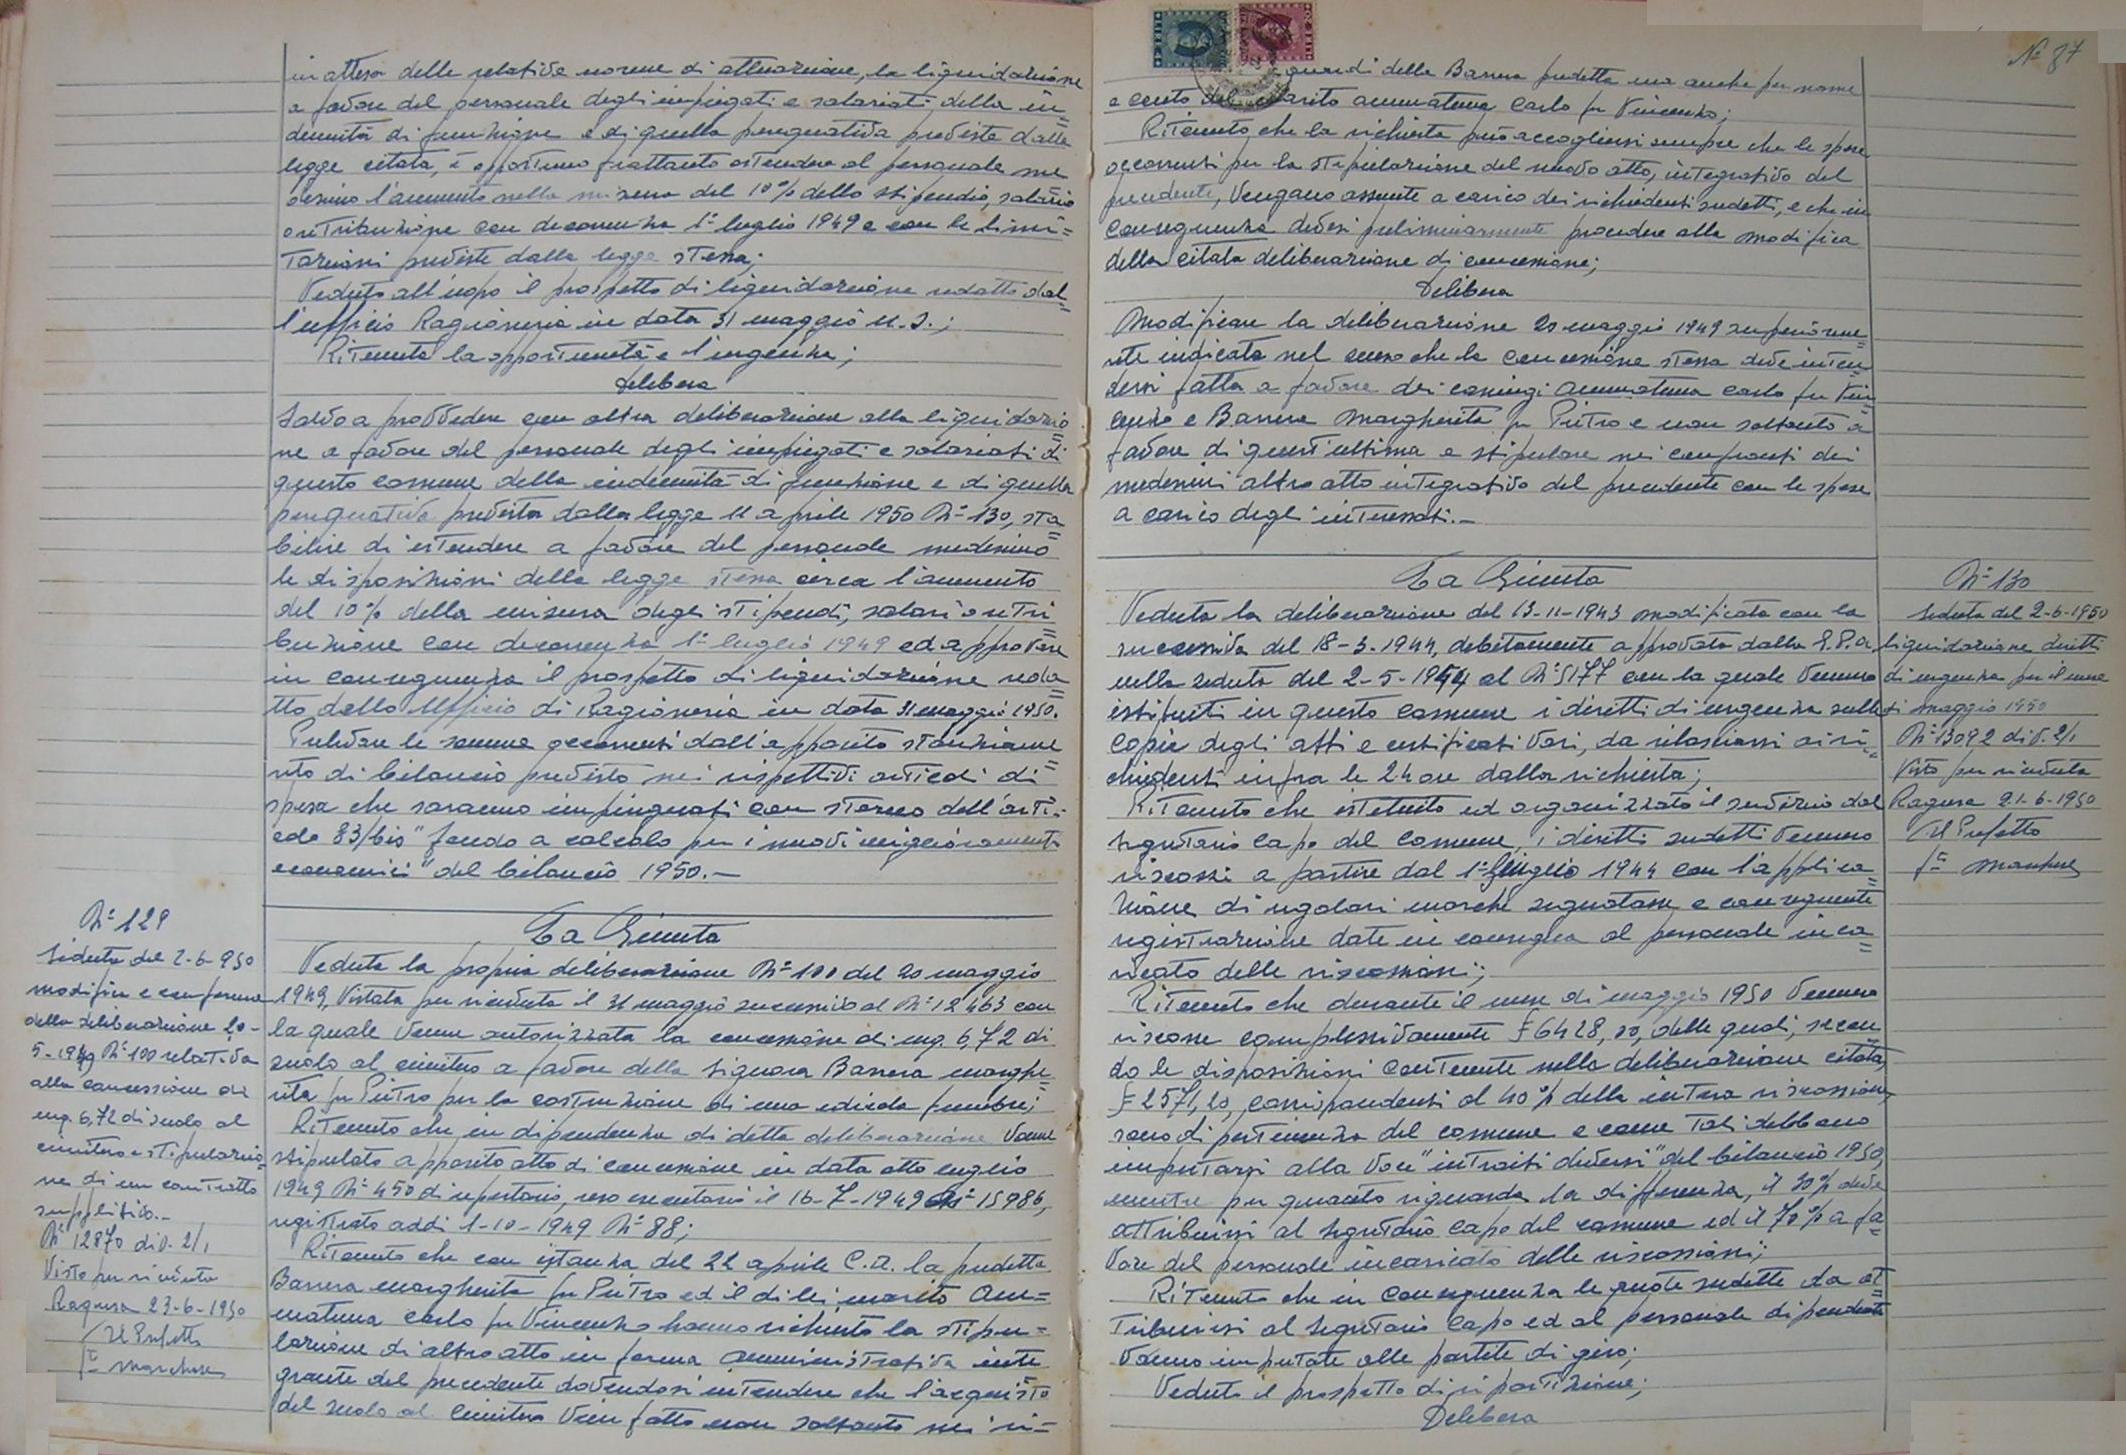 in attesa delle relative norme di attuazione, la liquidazione
a favore del personale degli impiegati e salariati della in=
dennità di funzione e di quella perequativa prevista dalla
legge citata, è opportuno frattanto estendere al personale me
desimo l'aumento nella misura del 10% dello stipendio, salario
o retribuzione con decorrenza 1° luglio 1949 e con le limi=
tazioni previste dalla legge stessa;
Veduto all'uopo il prospetto di liquidazione redatto dal=
l'ufficio Ragioneria in data 31 maggio u.s.;
Ritenuta la opportunità e l'urgenza;
Delibera
Salvo a provvedere con altra deliberazione alla liquidazio=
ne a favore del personale degli impiegati e salariati di
questo comune della indennità di funzione e di quella
perequativa prevista dalla legge 11 aprile 1950 N° 130, sta=
bilire di estendere a favore del personale medesimo
le disposizioni della legge stessa circa l'aumento
del 10% della misura degli stipendi, salari o retri
buzione con decorrenza 1° luglio 1949 ed approvare
in conseguenza il prospetto di liquidazione reda=
tto dallo Ufficio di Ragioneria in data 31 maggio 1950.
Prelevare le somme occorrenti dall'apposito stanziame=
nto di bilancio previsto nei rispettivi articoli di
spesa che saranno impinguati con storno dell'arti=
colo 83/bis "fondo a calcolo per i nuovi miglioramenti
economici" del bilancio 1950.—
N° 129
Seduta del 2-6-950
modifica e conferma
della deliberazione 20-
5-1949 N° 100 relativa
alla concessione di
mq. 6,72 di suolo al
cimitero e stipulazio=
ne di un contratto
suppletivo.—
N° 12870 div. 2/1
Visto per ricevuta
Ragusa 23-6-1950
Il Prefetto
La Giunta
Veduta la propria deliberazione N° 100 del 20 maggio
1949, vistata per ricevuta il 31 maggio successivo al N° 12463 con
la quale venne autorizzata la concessione di mq. 6,72 di
suolo al cimitero a favore della Signora Barrera Marghe=
rita fu Pietro per la costruzione di una edicola funebre;
Ritenuto che in dipendenza di detta deliberazione venne
stipulato apposito atto di concessione in data otto luglio
1949 N° 450 di repertorio, reso esecutorio il 16-7-1949 N° 15986,
registrato addì 1-10-1949 N° 88;
Ritenuto che con istanza del 22 aprile c.a. la predetta
Barrera Margherita fu Pietro ed il di lei marito Am=
matuna Carlo fu Vincenzo hanno richiesto la stipu=
lazione di altro atto in forma amministrativa inte
grante del precedente dovendosi intendere che l'acquisto
del suolo al Cimitero venne fatto non soltanto nei ri=
N° 87
guardi della Barrera predetta ma anche per nome
e conto del marito Ammatuna Carlo fu Vincenzo;
Ritenuto che la richiesta può accogliersi sempre che le spese
occorrenti per la stipulazione del nuovo atto, integrativo del
precedente, vengano assunte a carico dei richiedenti sudetti, e che in
conseguenza devesi preliminarmente procedere alla modifica
della citata deliberazione di concessione;
Delibera
Modificare la deliberazione 20 maggio 1949 superiorme=
nte indicata nel senso che la concessione stessa deve inten
dersi fatta a favore dei coniugi Ammatuna Carlo fu Vin=
cenzo e Barrera Margherita fu Pietro e non soltanto a
favore di quest'ultima e stipulare nei confronti dei
medesimi altro atto integrativo del precedente con le spese
a carico degli interessati.—
La Giunta
Veduta la deliberazione del 13-11-1943 modificata con la
successiva del 18-3-1944, debitamente approvata dalla G.P.A.
nella seduta del 2-5-1944 al N° 5177 con la quale vennero
istituiti in questo comune i diritti di urgenza sulle
copie degli atti e certificati vari, da rilasciarsi ai ri=
chiedenti infra le 24 ore dalla richiesta;
Ritenuto che istituito ed organizzato il servizio dal
segretario capo del comune, i diritti sudetti vennero
riscossi a partire dal 1° luglio 1944 con l'applica=
zione di regolari marche segnatasse e conseguente
registrazione date in consegna al personale inca=
ricato delle riscossioni;
Ritenuto che durante il mese di maggio 1950 vennero
riscosse complessivamente £ 6428,00, delle quali, secon
do le disposizioni contenute nella deliberazione citata,
£ 2571,20, corrispondenti al 40% della intera riscossione,
sono di pertinenza del comune e come tali debbono
imputarsi alla voce "introiti diversi" del bilancio 1950,
mentre per quanto riguarda la differenza, il 30% deve
attribuirsi al segretario capo del comune ed il 70% a fa=
vore del personale incaricato delle riscossioni;
Ritenuto che in conseguenza le quote sudette da at=
tribuirsi al segretario capo ed al personale dipendente
vanno imputate alle partite di giro;
Veduto il prospetto di ripartizione;
Delibera
N° 130
Seduta del 2-6-1950
liquidazione diritti
di urgenza per il mese
di maggio 1950
N° 13092 div. 2/1
Visto per ricevuta
Ragusa 21-6-1950
Il Prefetto